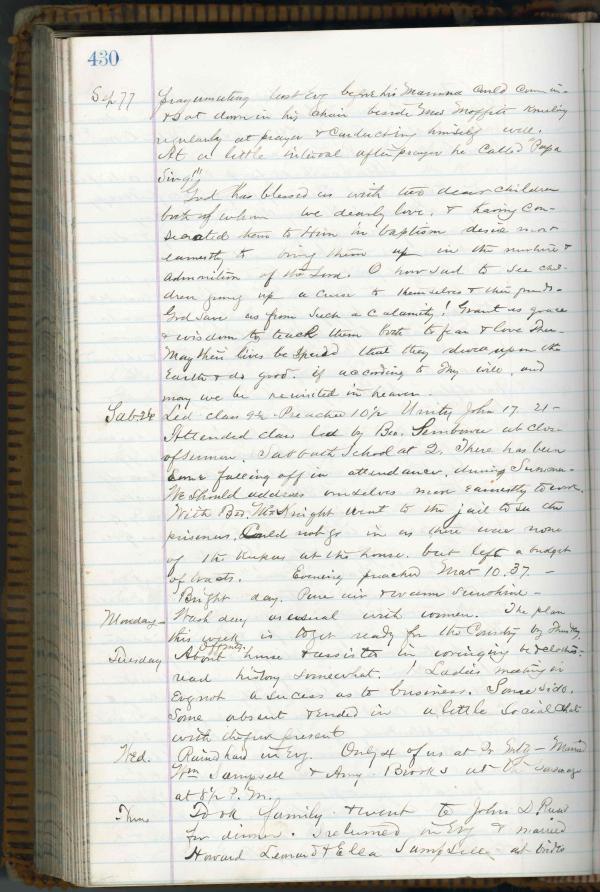 430
Sep 77 prayermeeting last Evg before his Mamma could come in
& sat down in his chair beside Mrs Moffett kneeling
regularly at prayer & conducting himself well.
At a little interval after prayer he called "Papa
Sing!"
God has blessed us with two dear children
both of whom we dearly love, & having con-
secrated them to Him in baptism desire most
earnestly to bring them up in the nurture &
admonition of the Lord. O how sad to see chil-
dren growing up a curse to themselves & their
God save us from such a calamity! Grant us grace
& wisdom to teach them both to fear & love Thee.
May their lives be spared that they upon the
Earth & do good. if according to Thy will, and
may we be reunited in heaven.
Sab Led class 9½ Preached 10½ Unity John 17 21-
Attended class led by Bro. at close
of sermon. Sabbath School at 2. There has been
some falling off in attendance, during Summer.
We should address ourselves more earnestly to work.
With Bro. McKnight went to the jail to see the
prisoners. Could not go in as there were none
of the at the house. but left a budget
of tracts. Evening preached Mat 10.37. -
Bright day. Pure air & warm sunshine -
Monday - Wash day as usual with women. The plan
this week is to get ready for the Country by Thursday
Tuesday About house & assister in wringing &
read history somewhat. ! Ladies meeting in
Evg not a sucess as to business. Some sick.
Some absent & ended in a little social chat
with the few present
Wed. Rained hard in Evg. Only 4 of us at - Married
Wm Sampsell & Amy Brooks at the
at 8½ P.M.
Thurs Took family & went to John D.
for dinner. I returned in Evg & married
Howard Leonard & Ella Sampsell at